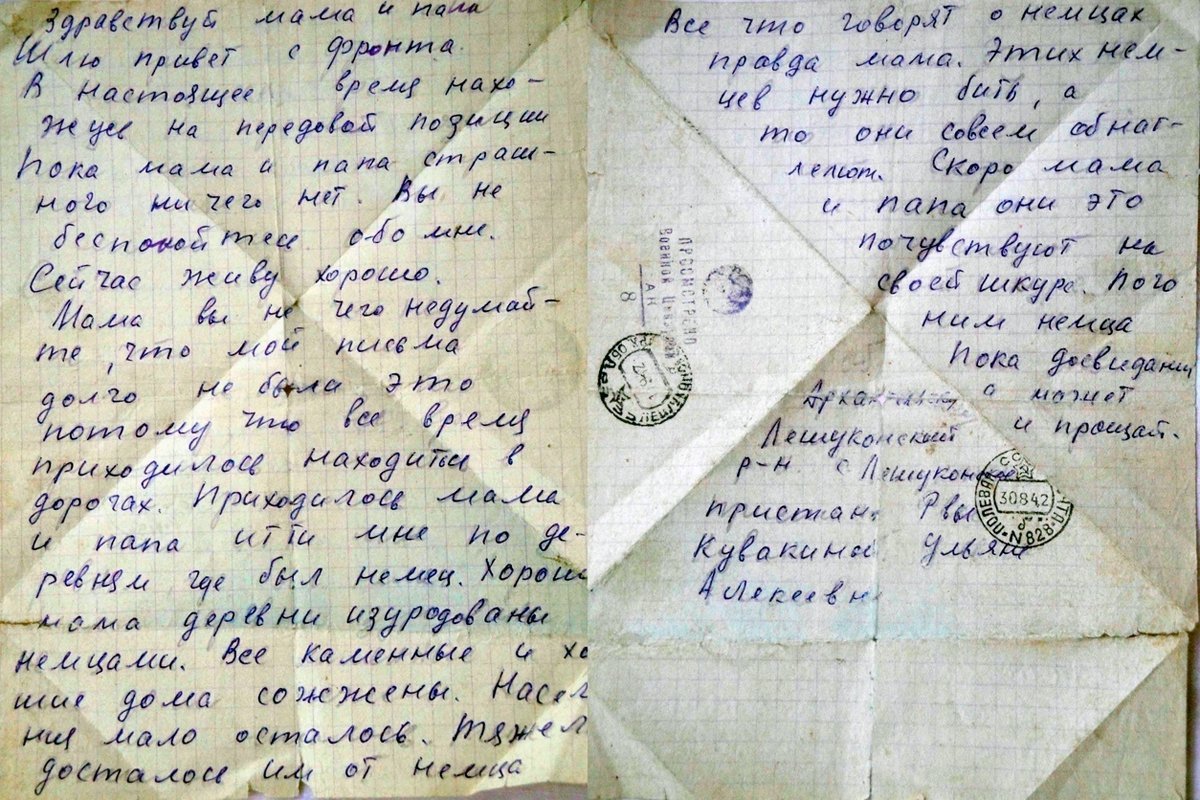 Здравствуй мама и папа
Шлю привет с фронта.
В настоящее время нахо-
жусь на передовой позиции
Пока мама и папа страш-
ного ни чего нет. Вы не
беспокойтесь обо мне.
Сейчас живу хорошо.
Мама вы не чего недумай-
те, что мой письма
долго не была это
потому что все время
приходилось находиться в
дорогах. Приходилось мама
и папа итти мне по де-
ревням где был немец. Хорош
мама деревни изуродованы
немцами. Все каменные и хо
шие дома сожжены. Насел
ния мало осталось. Тяжел
досталось им от немца
Все что говорят о немцах
правда мама. Этих нем-
цев нужно бить, а
то они совсем обнаг-
леют. Скоро мама
и папа они это
почувствуют на
своей шкуре. Пого
ним немца
Пока досвидания
а может
и прощай.
ПРОСМОТРЕНО
Военной Цензурой
АН
8
Лешуконский
р-н с Лешуконское
пристань
Кувакиной Ульяне
Алексеевне
ПОЛЕВАЯ
30842
N828